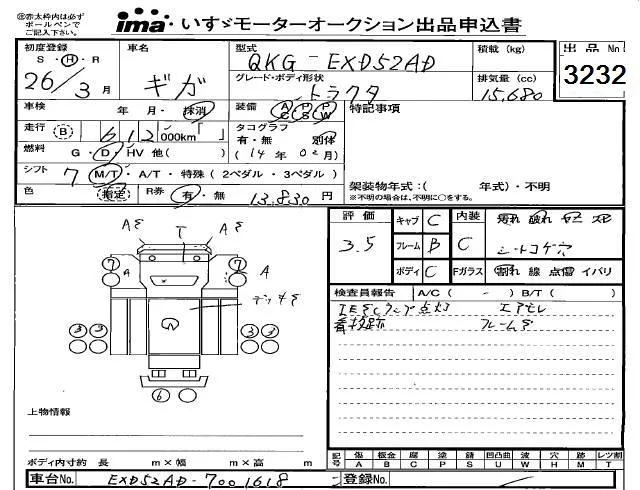 ㊟赤太枠内は必ず
ボールペンで
ご記入下さい。
ima いすゞモーターオークション出品申込書
初度登録 車名 型式 積載(kg) 出品No
S・H・R
26/3月 ギガ QKG-EXD52AD 3232
グレード・ボディ形状 排気量(cc)
トラクタ 15,680
車検 年 月・抹消 装備 AC PS PW 特記事項
走行 B 612,000km「 」 タコグラフ
有・無 別体
燃料 G・D・HV 他( ) (14年02月)
シフト 7 M/T・A/T・特殊(2ペダル・3ペダル)
色 指定 R券 有・無 13,830円
架装物年式:( 年式)・不明
※不明の場合は、不明に○をする。
評価 キャブ C 内装
3.5 フレーム B C シートコゲ穴
ボディ C Fガラス 割れ 線 点傷 イパリ
検査員報告 A/C( - ) B/T( )
エアモレ
看板跡 フレームサ
Aサ T Aサ
7 A 7 A
デッキサ
3 3 3 3
6
上物情報
ボディ内寸約 長 m×幅 m×高 m
記号 傷 板金 腐 塗 錆 凹凸曲 波 穴 跡 レツ割
A B C P S U W H M T
車台No. EXD52AD-7001618 登録No.